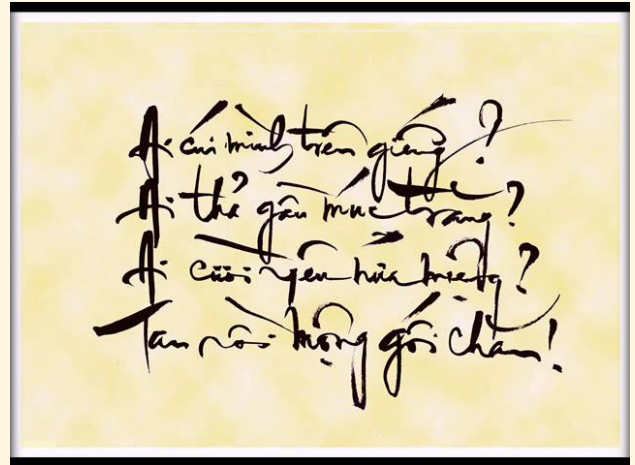 Ai cúi mình trên giếng?
Ai thả gầu múc trăng?
Ai cười yên hũa miệng?
Tan rồi mộng gối chăn!